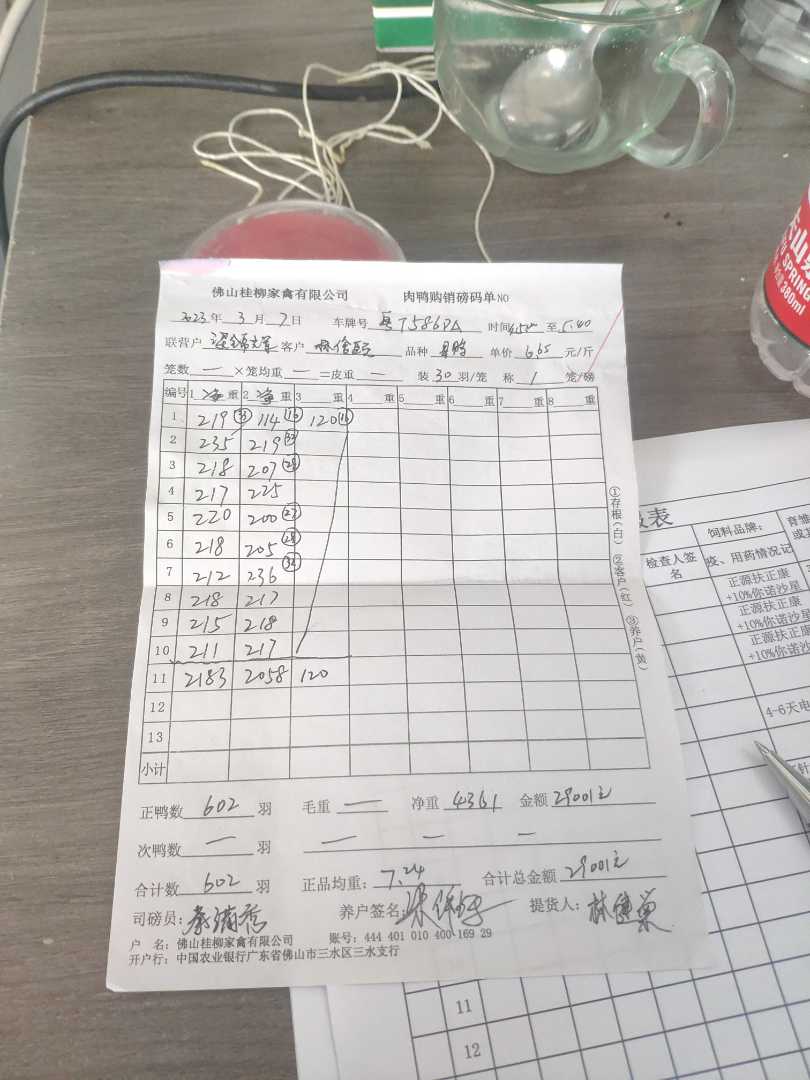 佛山桂柳家禽有限公司 肉鸭购销磅码单 NO
2023年 3月 7日 车牌号 粤T586DA 时间 至 5:40
联营户 客户 品种 单价 6.65 元/斤
笼数 — ×笼均重 — =皮重 — 装 30 羽/笼 称 1 笼/磅
编号 1 净重 2 净重 3 重 4 重 5 重 6 重 7 重 8 重
1 219 114 120
2 235 219
3 218 207
4 217 225
5 220 200 27
6 218 205
7 212 236
8 218 217
9 215 218
10 211 217
11 2183 2058 120
12
13
小计
①存根(白) ②客户(红) ③养户(黄)
正鸭数 602 羽 毛重 — 净重 4361 金额 29001元
次鸭数 — 羽 — — —
合计数 602 羽 正品均重: 7.24 合计总金额 29001元
司磅员: 养户签名: 提货人:
户 名: 佛山桂柳家禽有限公司 账号: 444 401 010 400 169 29
开户行: 中国农业银行广东省佛山市三水区三水支行
表
饲料品牌:
检查人签名
疫、用药情况记
正源扶正康
+10%你诺沙星
正源扶正康
+10%你诺沙星
正源扶正康
+10%你诺沙星
4-6天电
11
12
SPRING
380ml